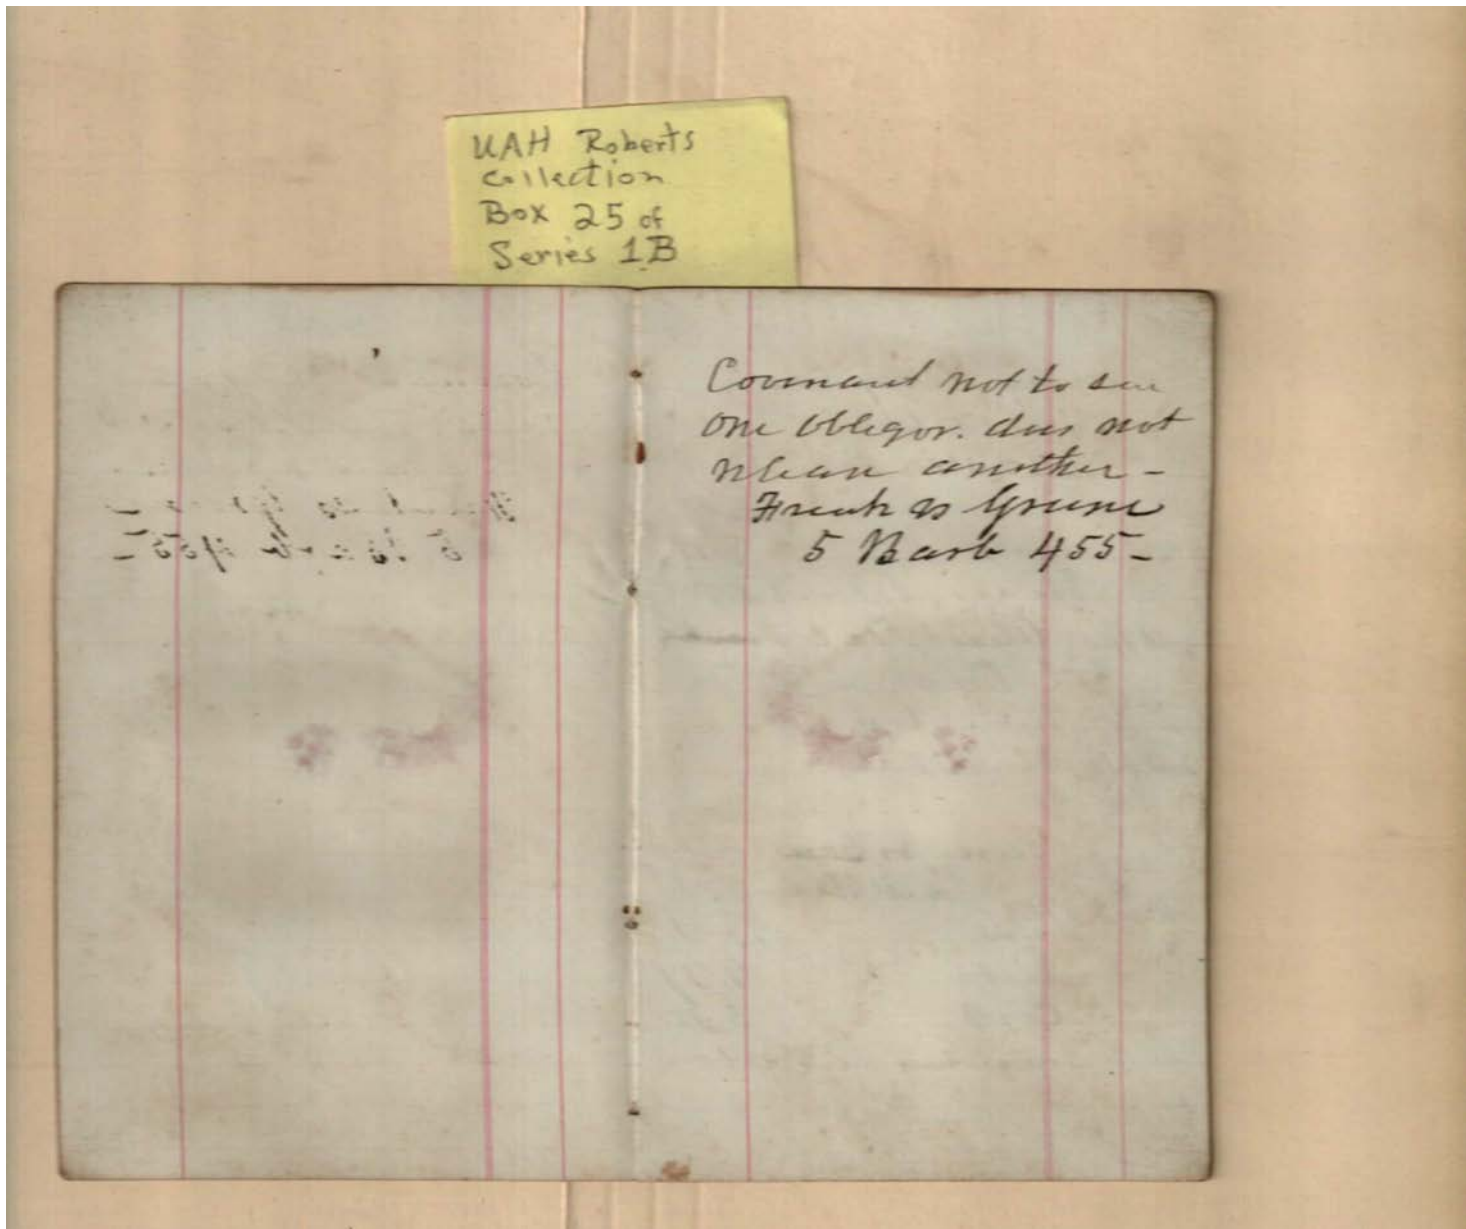 UAH Roberts
Collection
Box 25 of
Series 1B
Covenant not to sue
one obligor. does not
release another -
vs Greene
5 Barb 455-